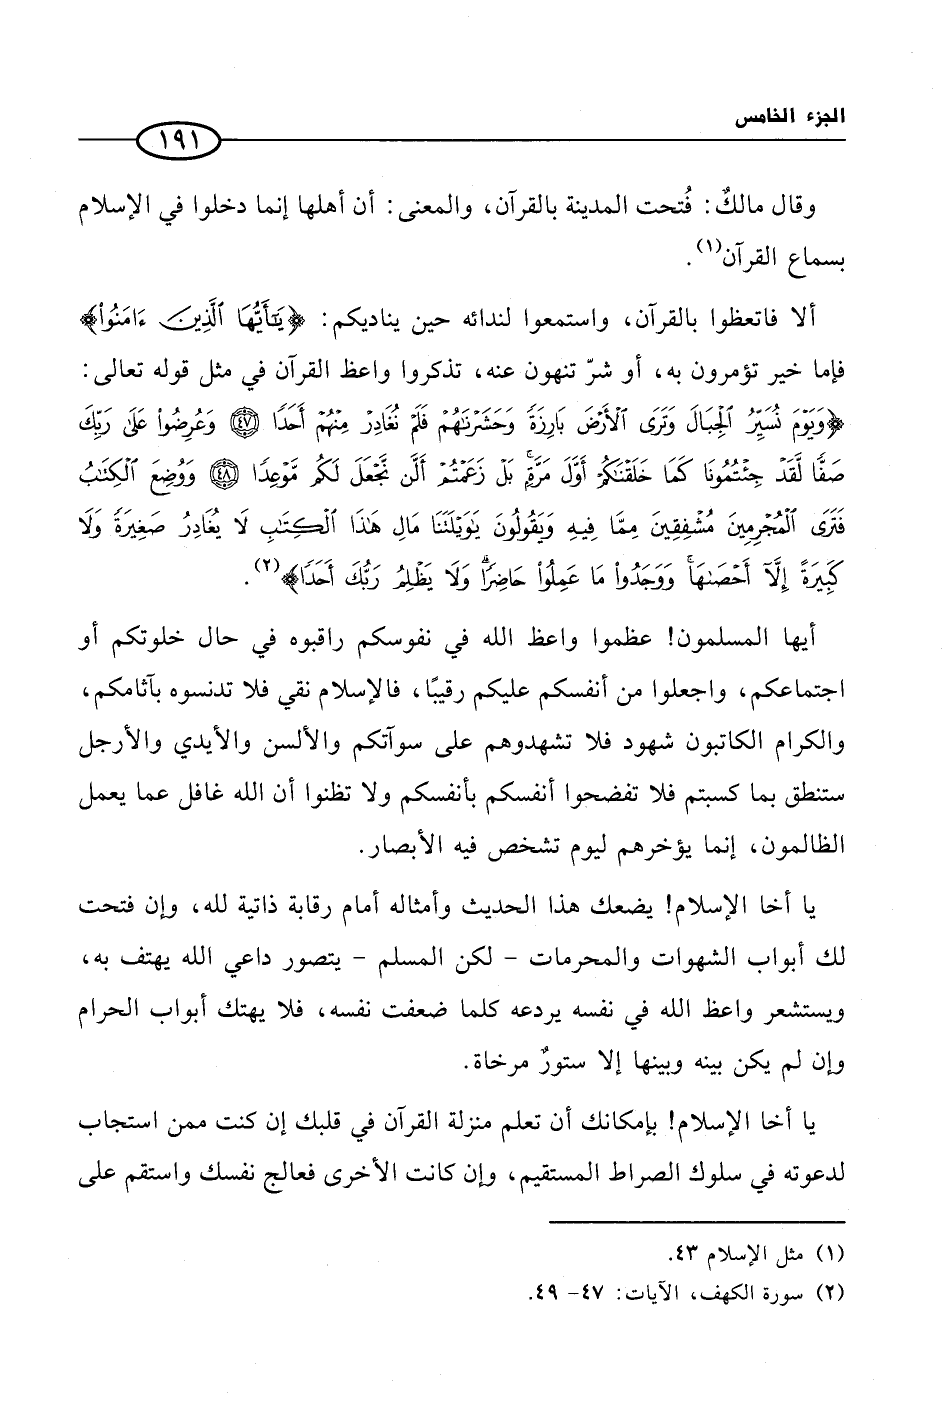 الجزء الخامس
١٩١
وقال مالكٌ: فُتحت المدينة بالقرآن، والمعنى: أن أهلها إنما دخلوا في الإسلام
بسماع القرآن(١).
ألا فاتعظوا بالقرآن، واستمعوا لندائه حين يناديكم: ﴿يَٰٓأَيُّهَا ٱلَّذِينَ ءَامَنُوا۟﴾
فإما خير تؤمرون به، أو شرّ تنهون عنه، تذكروا واعظ القرآن في مثل قوله تعالى:
﴿وَيَوْمَ نُسَيِّرُ ٱلْجِبَالَ وَتَرَى ٱلْأَرْضَ بَارِزَةً وَحَشَرْنَٰهُمْ فَلَمْ نُغَادِرْ مِنْهُمْ أَحَدًا ٤٧ وَعُرِضُوا۟ عَلَىٰ رَبِّكَ
صَفًّا لَّقَدْ جِئْتُمُونَا كَمَا خَلَقْنَٰكُمْ أَوَّلَ مَرَّةٍۭ بَلْ زَعَمْتُمْ أَلَّن نَّجْعَلَ لَكُم مَّوْعِدًا ٤٨ وَوُضِعَ ٱلْكِتَٰبُ
فَتَرَى ٱلْمُجْرِمِينَ مُشْفِقِينَ مِمَّا فِيهِ وَيَقُولُونَ يَٰوَيْلَتَنَا مَالِ هَٰذَا ٱلْكِتَٰبِ لَا يُغَادِرُ صَغِيرَةً وَلَا
كَبِيرَةً إِلَّآ أَحْصَىٰهَا ۚ وَوَجَدُوا۟ مَا عَمِلُوا۟ حَاضِرًا ۗ وَلَا يَظْلِمُ رَبُّكَ أَحَدًا﴾(٢).
أيها المسلمون! عظموا واعظ الله في نفوسكم راقبوه في حال خلوتكم أو
اجتماعكم، واجعلوا من أنفسكم عليكم رقيبًا، فالإسلام نقي فلا تدنسوه بآثامكم،
والكرام الكاتبون شهود فلا تشهدوهم على سوآتكم والألسن والأيدي والأرجل
ستنطق بما كسبتم فلا تفضحوا أنفسكم بأنفسكم ولا تظنوا أن الله غافل عما يعمل
الظالمون، إنما يؤخرهم ليوم تشخص فيه الأبصار.
يا أخا الإسلام! يضعك هذا الحديث وأمثاله أمام رقابة ذاتية لله، وإن فتحت
لك أبواب الشهوات والمحرمات - لكن المسلم - يتصور داعي الله يهتف به،
ويستشعر واعظ الله في نفسه يردعه كلما ضعفت نفسه، فلا يهتك أبواب الحرام
وإن لم يكن بينه وبينها إلا ستورٌ مرخاة.
يا أخا الإسلام! بإمكانك أن تعلم منزلة القرآن في قلبك إن كنت ممن استجاب
لدعوته في سلوك الصراط المستقيم، وإن كانت الأخرى فعالج نفسك واستقم على
(١) مثل الإسلام ٤٣.
(٢) سورة الكهف، الآيات: ٤٧- ٤٩.